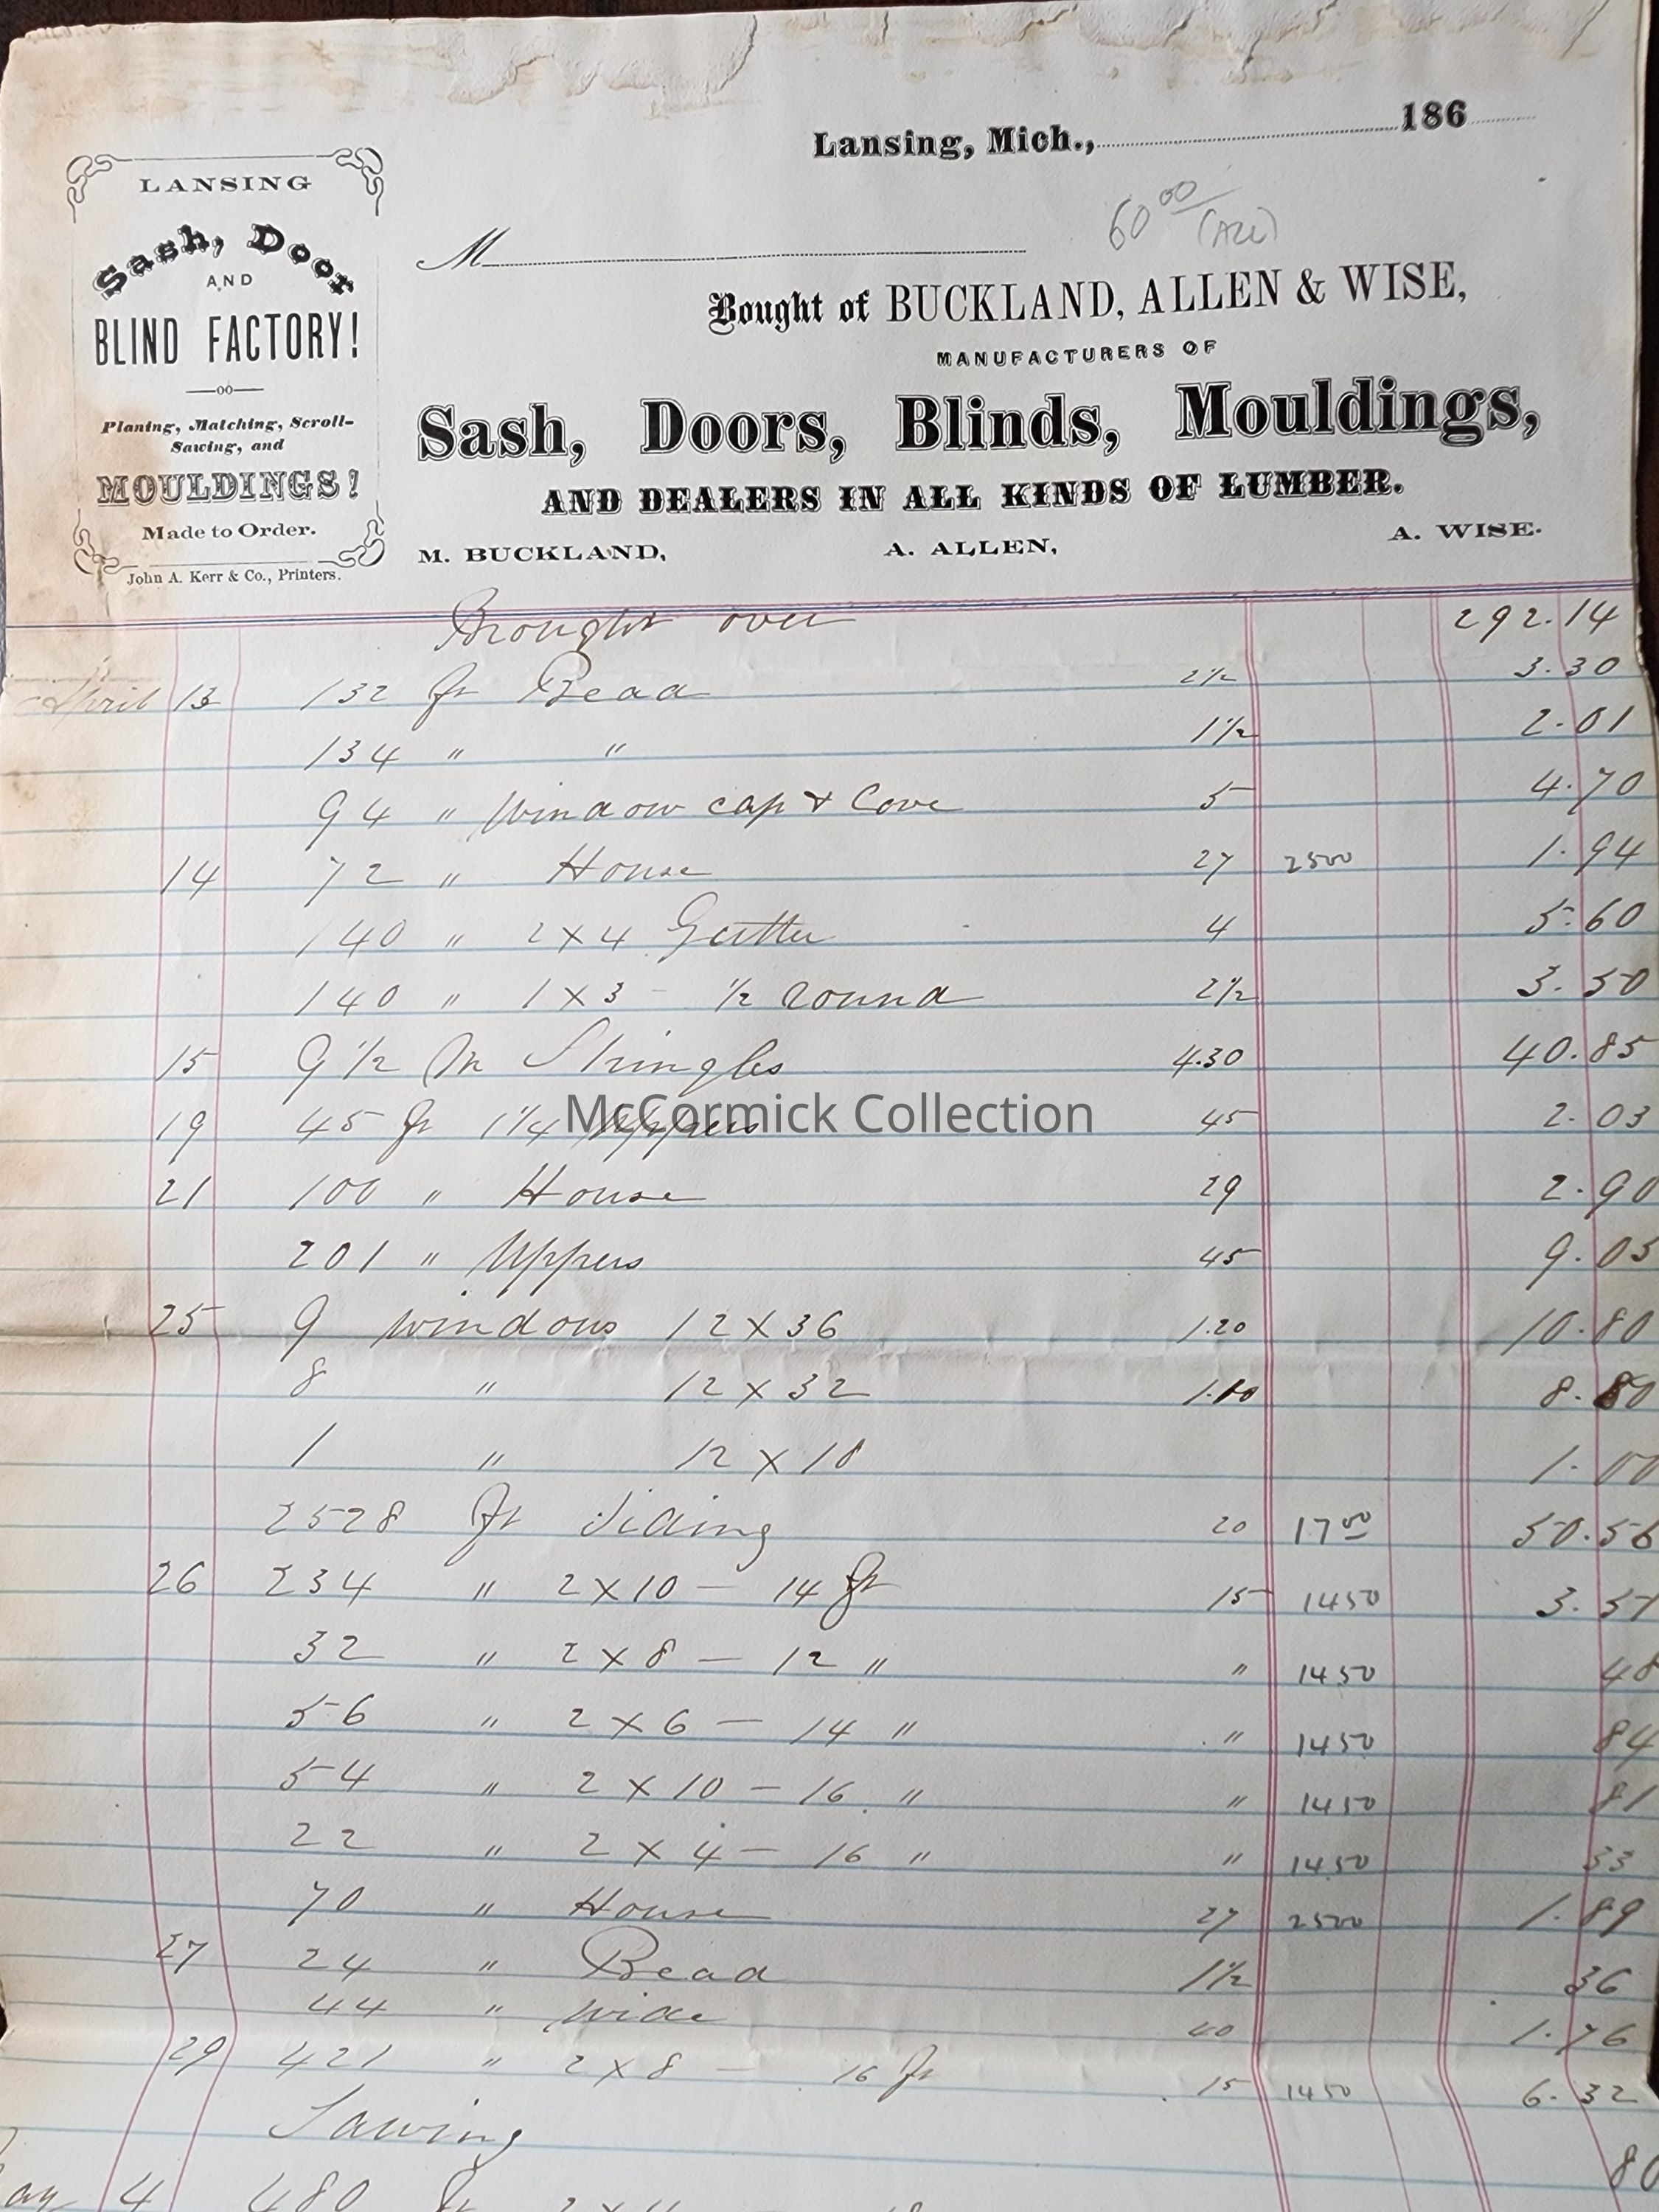 Lansing, Mich., 186
60 00 (ALL)
M
LANSING
Sash, Door
AND
BLIND FACTORY!
oo
Planing, Matching, Scroll-
Sawing, and
MOULDINGS!
Made to Order.
John A. Kerr & Co., Printers.
Bought of BUCKLAND, ALLEN & WISE,
MANUFACTURERS OF
Sash, Doors, Blinds, Mouldings,
AND DEALERS IN ALL KINDS OF LUMBER.
M. BUCKLAND, A. ALLEN, A. WISE.
Brought over 292.14
April 13 132 ft Bead 2½ 3.30
134 " " 1½ 2.01
94 " Window cap & Cove 5 4.70
14 72 " House 27 2500 1.94
140 " 2 x 4 Gutter 4 5.60
140 " 1 x 3 - ½ round 2½ 3.50
15 9½ M Shingles 4.30 40.85
19 45 ft 1¼ Uppers 45 2.03
McCormick Collection
21 100 " House 29 2.90
201 " Uppers 45 9.05
25 9 windows 12 x 36 1.20 10.80
8 " 12 x 32 1.10 8.80
1 " 12 x 18 1.00
2528 ft Siding 20 17 00 50.56
26 234 " 2 x 10 — 14 ft 15 1450 3.51
32 " 2 x 8 — 12 " " 1450 48
56 " 2 x 6 — 14 " " 1450 84
54 " 2 x 10 — 16 " " 1450 81
22 " 2 x 4 — 16 " " 1450 33
70 " House 27 2500 1.89
27 24 " Bead 1½ 36
44 " Wide 40 1.76
29 421 " 2 x 8 — 16 ft 15 1450 6.32
Sawing 80
ay 4 480 ft